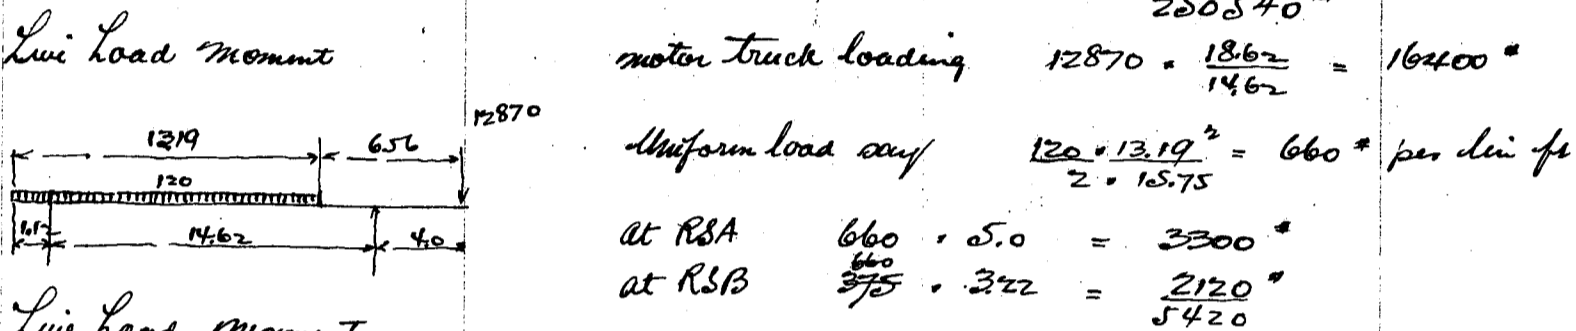 250540
Live Load moment
motor truck loading 12870 · 18.62 / 14.62 = 16400 #
12870
1319 656
Uniform load say 120 · 13.19² / 2 · 15.75 = 660 # per lin ft
120
1.12 14.62 4.0
at RSA 660 · 5.0 = 3300 #
660
at RSB 375 · 3.22 = 2120 #
5420
Live Load moment